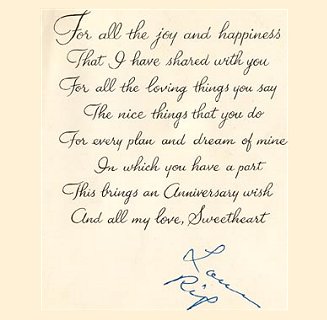 For all the joy and happiness
That I have shared with you
For all the loving things you say
The nice things that you do
For every plan and dream of mine
In which you have a part
This brings an Anniversary wish
And all my love, Sweetheart
Rip